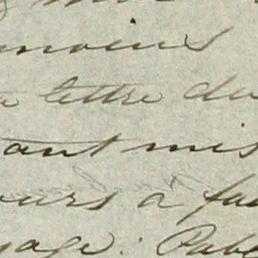 moins
lettre du
ant mis
ours à fa
age. Pab